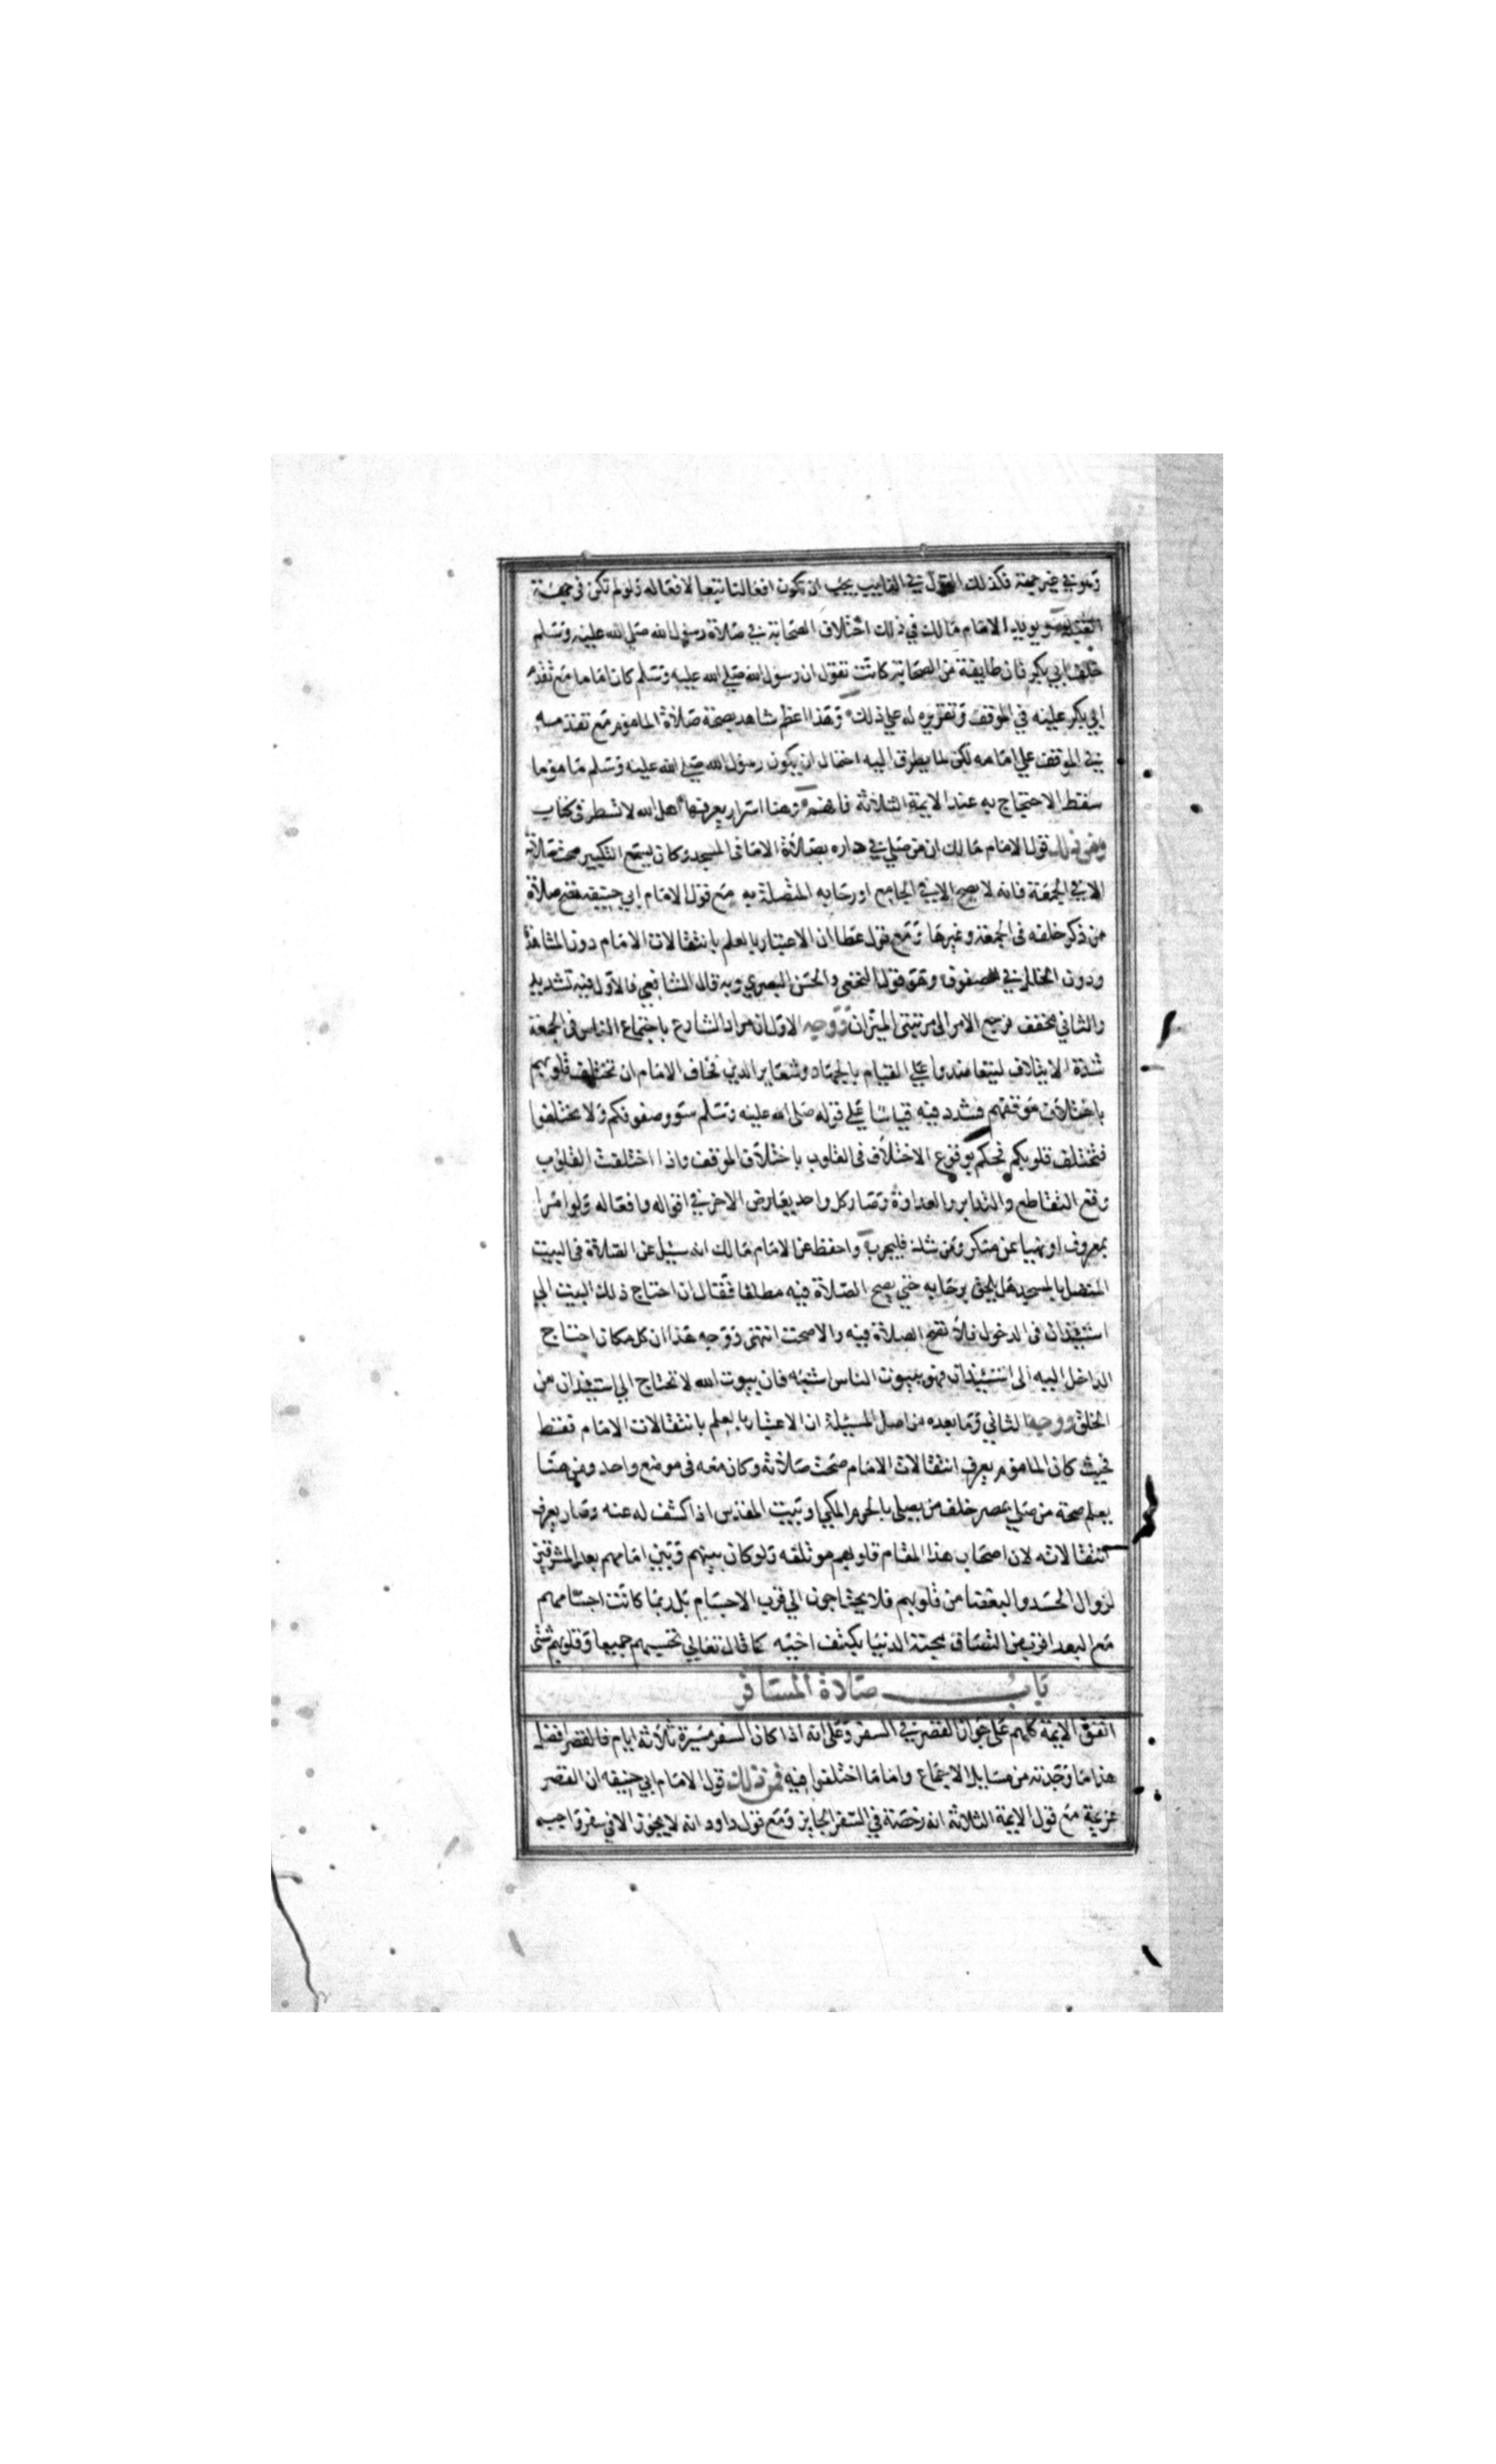 وهو في غير جهته فكذلك القول في الغايب يجب ان تكون افعالنا تبعا لافعاله ولو لم تكن في جهة
القبلة ويويد الامام مالك في ذلك اختلاف الصحابة في صلاة رسول الله صلي الله عليه وسلم
خلف ابي بكر فان طايفة من الصحابة كانت تقول ان رسول الله صلي الله عليه وسلم كان اماما مع تقدم
ابي بكر عليه في الموقف وتقريره له علي ذلك وهذا اعظم شاهد بصحة صلاة الماموم مع تقدمه
في الموقف علي امامه لكن لما يطرق اليه احتمال ان يكون رسول الله صلي الله عليه وسلم ماموما
سقط الاحتجاج به عند الايمة الثلاثة فافهم وهنا اسرار يعرفها اهل الله لا تسطر في كتاب
ومن ذلك قول الامام مالك ان من صلي في داره بصلاة الامام في المسجد وكان يسمع التكبير صحت صلاته
الا في الجمعة فانه لا يصح الا في الجامع او رحابه المتصلة به مع قول الامام ابي حنيفة تصح صلاة
من ذكر خلفه في الجمعة وغيرها ومع قول عطا ان الاعتبار بالعلم بانتقالات الامام دون المشاهدة
ودون الخلل في الصفوف وهو قول النخعي والحسن البصري وبه قال الشافعي فالاول فيه تشديد
والثاني مخفف فرجع الامر الي مرتبتي الميزان ووجه الاول ان مراد الشارع باجتماع الناس في الجمعة
شدة الايتلاف ليتعاضدوا علي القيام بالجهاد وشعاير الدين فخاف الامام ان تختلف قلوبهم
باختلاف موقفهم فشدد فيه قياسا علي قوله صلي الله عليه وسلم سووا صفوفكم ولا تختلفوا
فتختلف قلوبكم فحكم بوقوع الاختلاف في القلوب باختلاف الموقف واذا اختلفت القلوب
وقع التقاطع والتدابر والعداوة وصار كل واحد يعارض الاخر في اقواله وافعاله ولو امرا
بمعروف او نهيا عن منكر ومن شك فليجرب واحفظ عن الامام مالك انه سيل عن الصلاة في البيت
المتصل بالمسجد هل يلحق برحابه حتي يصح الصلاة فيه مطلقا فقال ان احتاج ذلك البيت الي
استيذان في الدخول فلا تصح الصلاة فيه والا صحت انتهي ووجه هذا ان كل مكان احتاج
الداخل اليه الي استيذان فهو ببيوت الناس اشبه فان بيوت الله لا تحتاج الي استيذان من
الخلق ووجه الثاني وما بعده من اصل المسيلة ان الاعتبار بالعلم بانتقالات الامام فقط
فحيث كان الماموم يعرف انتقالات الامام صحت صلاته وكان معه في موضع واحد ومن هنا
يعلم صحة من صلي بمصر خلف من يصلي بالحرم المكي او بيت المقدس اذا كشف له عنه وصار يعرف
انتقالاته لان اصحاب هذا المقام قلوبهم موتلفه ولو كان بينهم وبين امامهم بعد المشرقين
لزوال الحسد والبغضا من قلوبهم فلا يحتاجون الي قرب الاجسام بل ربما كانت اجسامهم
مع البعد اقرب من التصاق محبة الدنيا بكتف اخيه كما قال تعالي تحسبهم جميعا وقلوبهم شتي
باب صلاة المسافر
اتفق الايمة كلهم علي جواز القصر في السفر وعلي انه اذا كان السفر مسيرة ثلاثة ايام فالقصر افضل
هذا ما وجدته من مسايل الاجماع واما ما اختلفوا فيه فمن ذلك قول الامام ابي حنيفه ان القصر
عزيمة مع قول الايمة الثلاثة انه رخصة في السفر الجايز ومع قول داود انه لا يجوز الا في سفر واجب